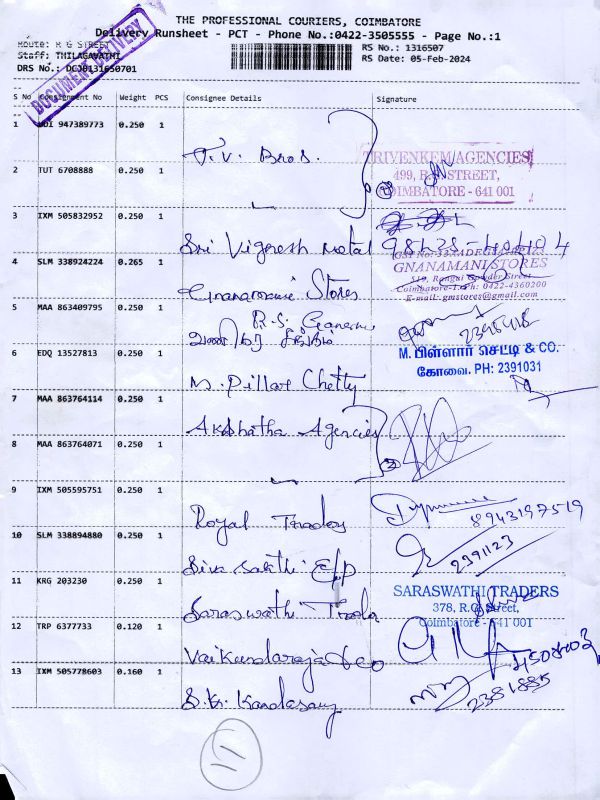 THE PROFESSIONAL COURIERS, COIMBATORE
Delivery Runsheet - PCT - Phone No.:0422-3505555 - Page No.:1
Route: R G STREET
RS No.: 1316507
Staff: THILAGAVATHI
RS Date: 05-Feb-2024
DRS No.:
DOCUMENT DELIVERY
S No Consignment No Weight PCS Consignee Details Signature
1 947389773 0.250 1
J.V. Bros.
TRIVENKEM AGENCIES
2 TUT 6708888 0.250 1
499, STREET,
COIMBATORE - 641 001
3 IXM 505832952 0.250 1
Sri Vignesh Metal
4 SLM 338924224 0.265 1
GNANAMANI STORES
519, Rangai Gowder Street
Coimbatore-1. Ph: 0422-4360200
E-mail: gmstores@gmail.com
Gnanamani Stores
5 MAA 863409795 0.250 1
R.S. Ganesh
2395418
6 EDQ 13527813 0.250 1
M. பிள்ளார் செட்டி & CO.
கோவை. PH: 2391031
M. Pillare Chetty
7 MAA 863764114 0.250 1
Akshatha Agencies
8 MAA 863764071 0.250 1
2
9 IXM 505595751 0.250 1
Royal Traders
8943197519
10 SLM 338894880 0.250 1
Siva Sakthi
2391123
11 KRG 203230 0.250 1
SARASWATHI TRADERS
378, R.G. Street,
Coimbatore - 641 001
Saraswathi Trade
12 TRP 6377733 0.120 1
Vaikundaraja & co
13 IXM 505778603 0.160 1
2381885
S.K. Kandasamy
11